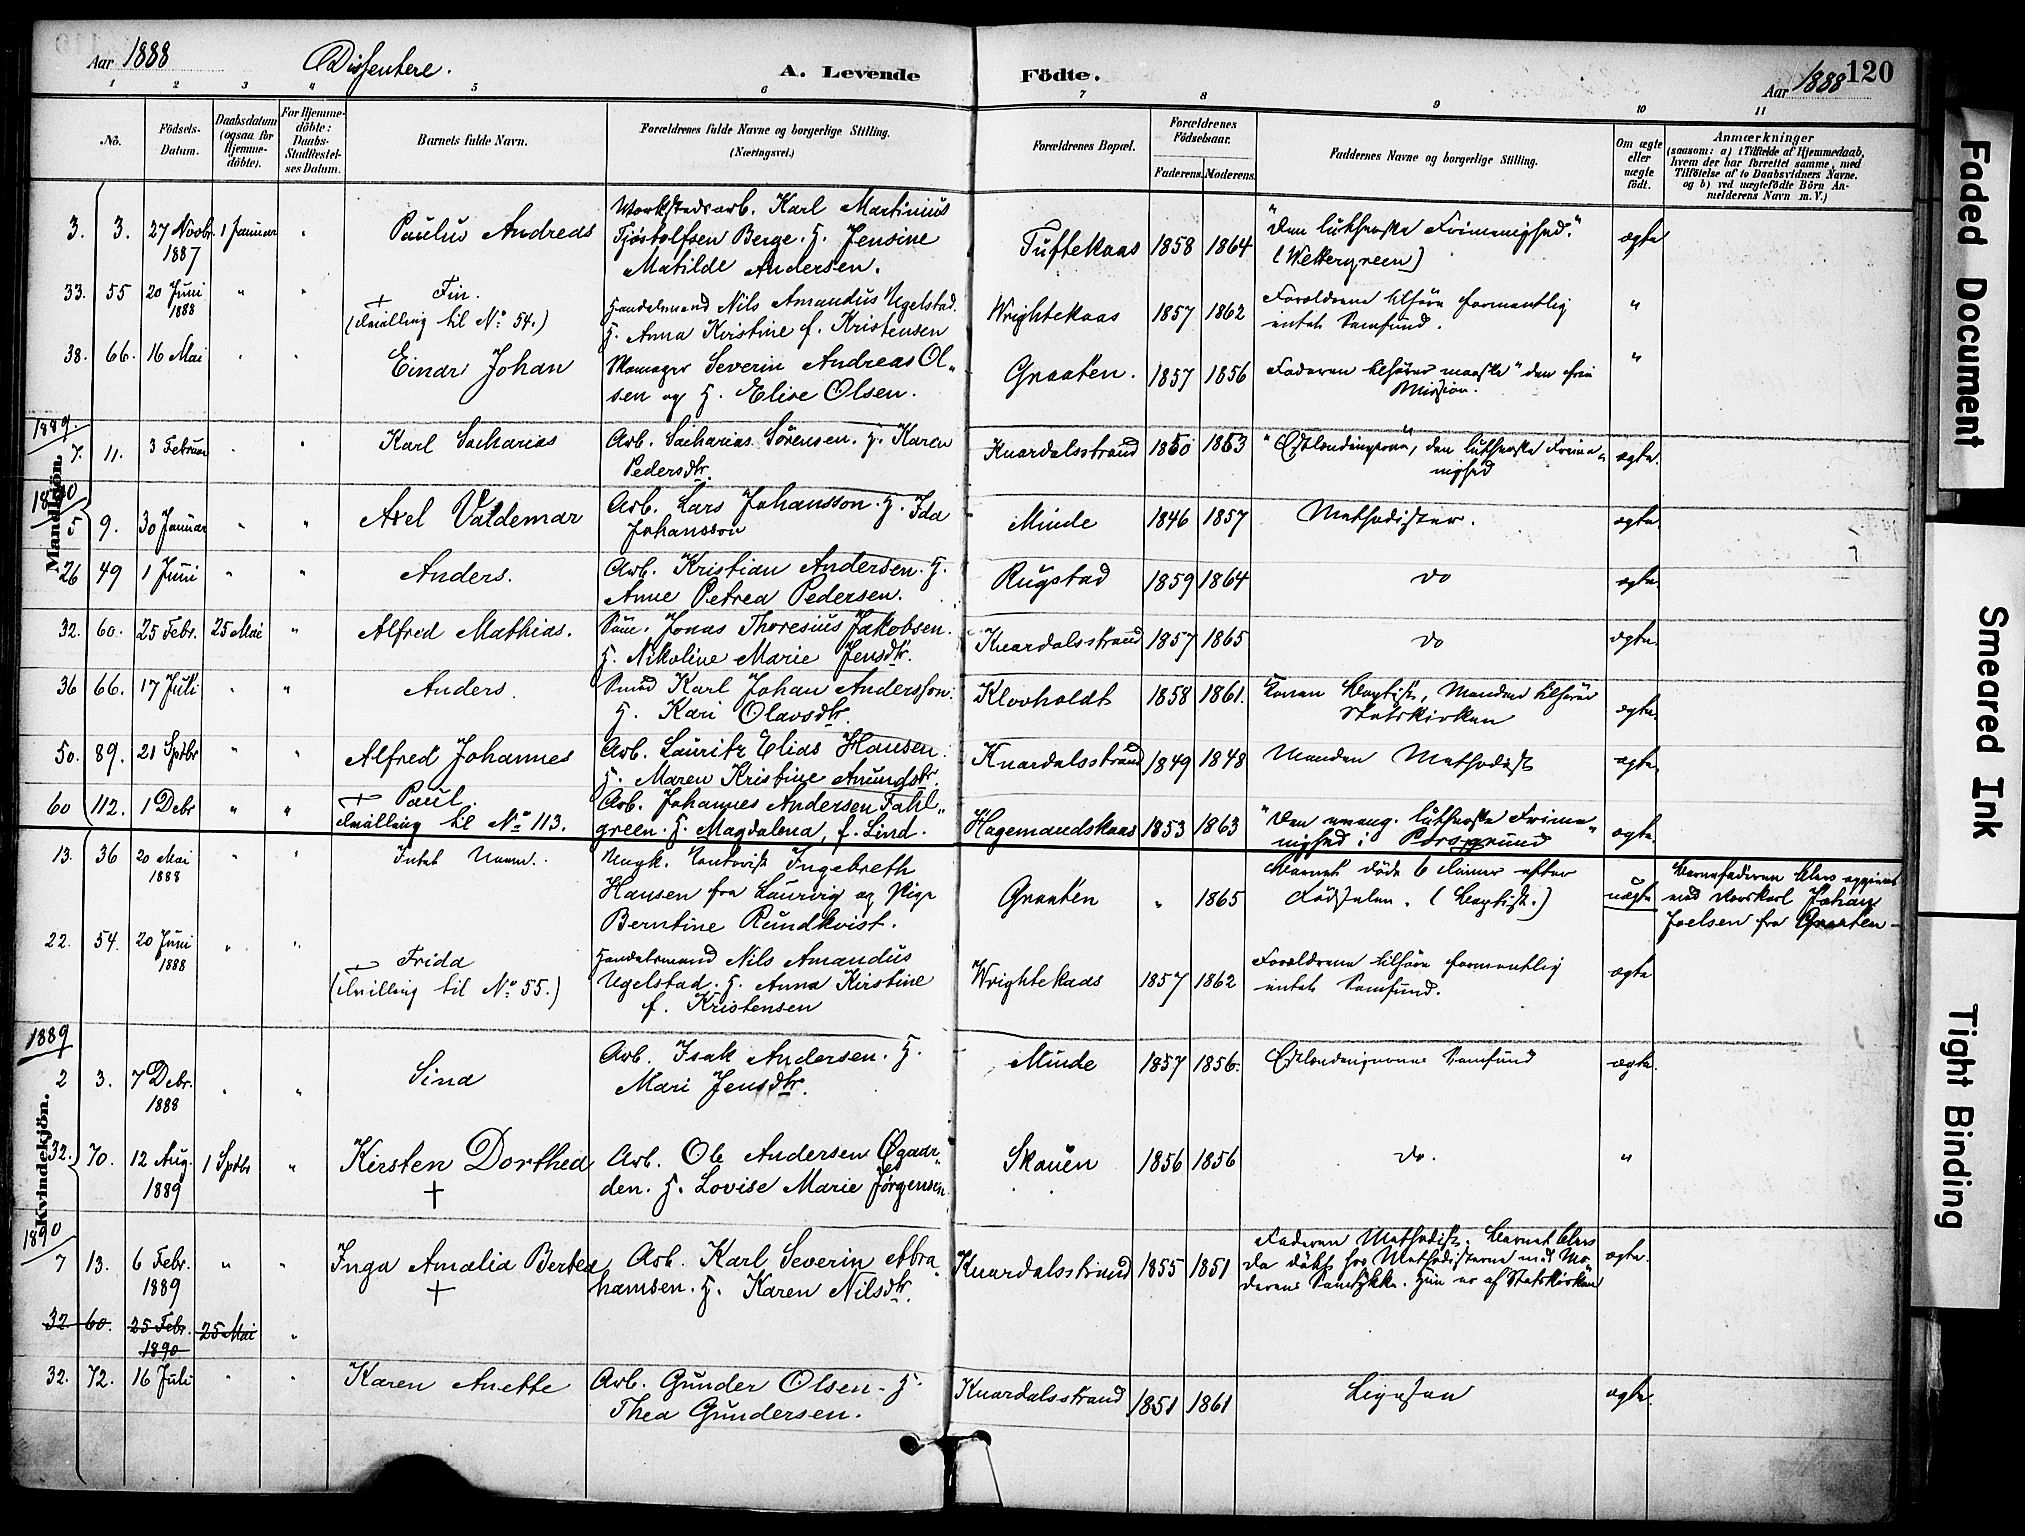 Aar 1888 Dissentere. A. Levende Födte. Aar 1888 120
1 2 3 4 5 6 7 8 9 10 11
No. Födsels-Datum. Daabsdatum (ogsaa for Hjemme-döbte). For Hjemme-döbte: Daabs-Stadfæstel-ses Datum. Barnets fulde Navn. Forældrenes fulde Navne og borgerlige Stilling. (Næringsvei.) Forældrenes Bopæl. Forældrenes Födselsaar. Faderens. Moderens. Faddernes Navne og borgerlige Stilling. Om ægte eller uægte födt. Anmærkninger (saasom: a) i Tilfælde af Hjemmedaab, hvem der har forrettet samme, med Tilföielse af to Daabsvidners Navne. og b) ved uægtefödte Börn An-melderens Navn m. V.)
Mandkjön.
3. 3. 27 Novbr. 1887 1 Januar " Paulus Andreas Værkstedsarb. Karl Martinius
Tjöstolfsen Berge. H. Jensine
Matilde Andersen. Tuftekaas 1858 1864 "Den lutherske Frimenighed."
(Wettergreen) ægte
33. 55 20 Juni 1888 " " + Fin.
(Tvilling til No 54.) Handelsmand Nils Amandus Ugelstad.
H. Anna Kristine f. Kristensen Wrightekaas 1857 1862 Forældrene tilhøre formentlig
intet Samfund. "
38. 66. 16 Mai " " Einar Johan Skomager Severin Andreas Ol-
sen og H. Elise Olsen. Graaten. 1857 1856 Faderen tilhører maaske "den frie
Mission. "
1889.
7. 11. 3 Februar " " Karl Sacharias Arb. Sacharias Sörensen. H. Karen
Pedersdtr. Knardalsstrand 1850 1853 "Østlændingerne", den lutherske Frime-
nighed ægte.
1890
5 9. 30 Januar " " Axel Valdemar Arb. Lars Johansson. H. Ida
Johansson Minde 1846 1857 Methodister. ægte.
26 49 1 Juni " " Anders. Arb. Kristian Andersen. H.
Anne Petrea Pedersen. Rugstad 1859 1864 do ægte.
32. 60. 25 Febr. 25 Mai " Alfred Mathias. Söm. Jonas Thoresius Jakobsen.
H. Nikoline Marie Jensdtr. Knardalsstrand 1857 1865 do ægte.
36 66. 17 Juli " " Anders. Smed Karl Johan Andersson.
H. Kari Olavsdtr. Klovholdt 1858 1861. Konen Baptist, Manden tilhører
Statskirken ægte.
50. 89. 21 Sptbr " " Alfred Johannes Arb. Lauritz Elias Hansen.
H. Maren Kristine Anundsdtr. Knardalsstrand 1849 1848 Manden Methodist ægte.
60 112. 1 Debr " " + Paul.
Tvilling til No 113. Arb. Johannes Andersen Fahl-
green. H. Magdalena, f. Lind. Hagemandskaas 1853 1863 "Den evang. lutherske Frime-
nighed i Porsgrund ægte.
Kvindekjön.
13. 36 20 Mai 1888 " " Intet Navn. Ungk. Kontorist Ingebreth
Hansen fra Laurvig og Pige
Berntine Rundkvist. Graaten " 1865 Barnet døde 6 Timer efter
Fødselen. (Baptist.) uægte Barnefaderen blev opgivet
med Norskarl Johan
Joelsen fra Graaten
22. 54. 20 Juni 1888 " " + Frida
(Tvilling til No 55.) Handelsmand Nils Amandus
Ugelstad. H. Anna Kirstine
f. Kristensen Wrightekaas 1857 1862 Forældrene tilhøre formentlig
intet Samfund. ægte
1889
2 3. 7 Debr. 1888 " " Sina Arb. Isak Andersen. H.
Mari Jensdtr. Minde 1857 1856. Østlændingernes Samfund ægte.
32. 70. 12 Aug. 1889 1 Sptbr " Kirsten Dorthea + Arb. Ole Andersen Øgaar-
den. H. Lovise Marie Jörgensen Skauen 1856 1856 do. "
1890
7 13. 6 Febr. 1889 " " Inga Amalia Bertea + Arb. Karl Severin Abra-
hamsen. H. Karen Nilsdtr. Knardalsstrand 1855 1851 Faderen Methodist. Barnet blev
da døbt hos Methodisterne med Mo-
derens Samtykke. Hun er af Statskirken ægte.
32. 60. 25 Febr. 1890 25 Mai "
32. 72. 16 Juli " " Karen Anette Arb. Gunder Olsen. H.
Thea Gundersen. Knardalsstrand 1851 1861 ægte.
Faded Document
Smeared Ink
Tight Binding